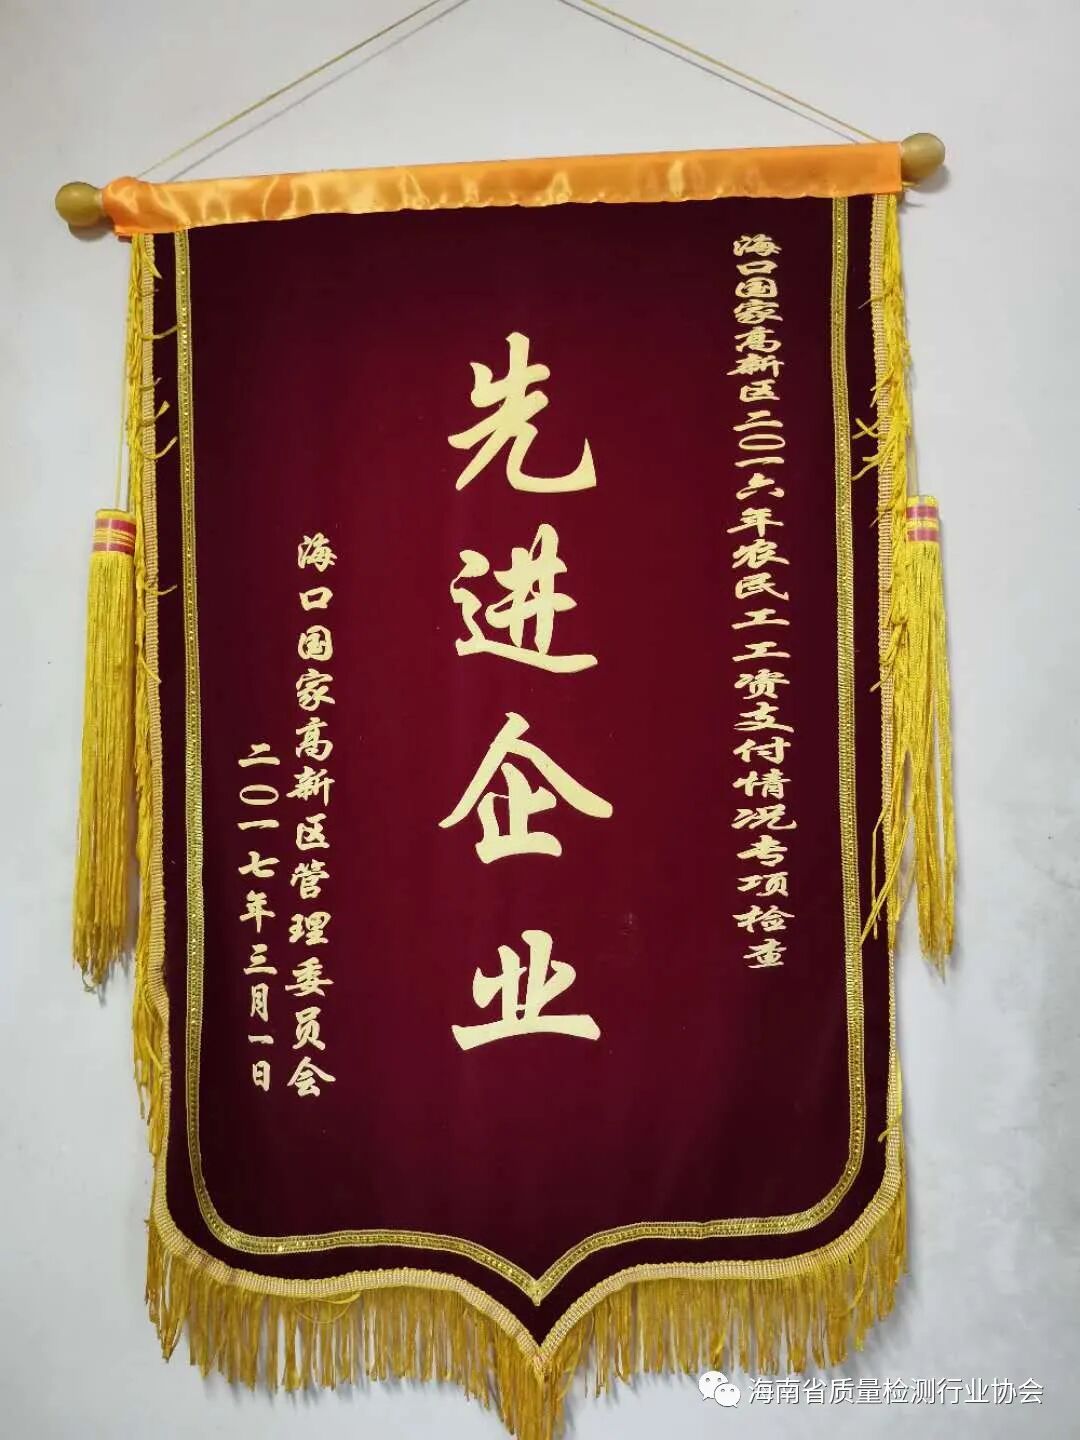 海口国家高新区二〇一六年农民工工资支付情况专项检查
先进企业
海口国家高新区管理委员会
二〇一七年三月一日
海南省质量检测行业协会